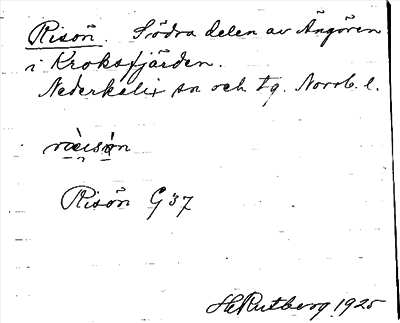 Risön. Södra delen av Ängören
i Kroksfjärden.
Nederkalix sn och tg. Norrb. l.
Risön G 37
H. Rutberg 1925